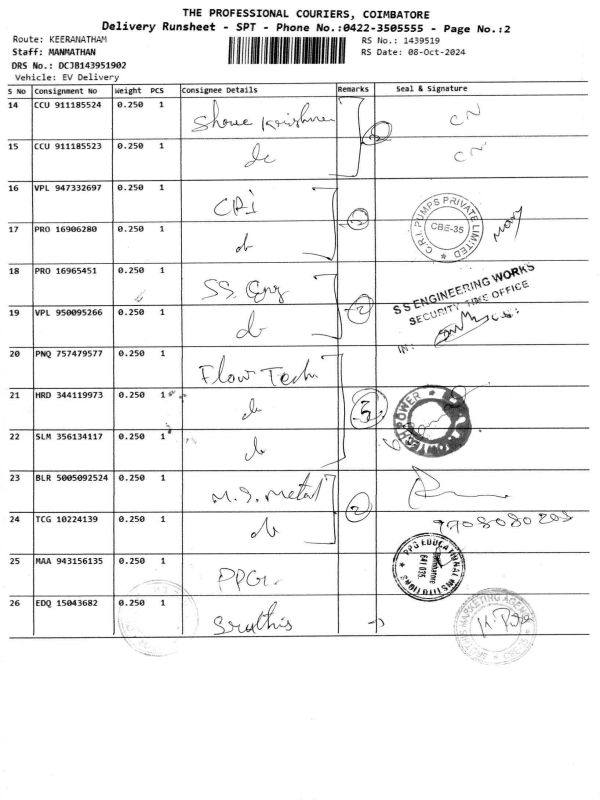 THE PROFESSIONAL COURIERS, COIMBATORE
Delivery Runsheet - SPT - Phone No.:0422-3505555 - Page No.:2
Route: KEERANATHAM
RS No.: 1439519
Staff: MANMATHAN
RS Date: 08-Oct-2024
DRS No.: DCJB143951902
Vehicle: EV Delivery
S No Consignment No Weight PCS Consignee Details Remarks Seal & Signature
14 CCU 911185524 0.250 1 Shree Krishna CN
15 CCU 911185523 0.250 1 do CN
16 VPL 947332697 0.250 1 CRI
17 PRO 16906280 0.250 1 do
C.R.I. PUMPS PRIVATE LIMITED
CBE-35
18 PRO 16965451 0.250 1 SS. Eng
19 VPL 950095266 0.250 1 do 2
S S ENGINEERING WORKS
SECURITY TIME OFFICE
IN:
20 PNQ 757479577 0.250 1 Flow Tech
21 HRD 344119973 0.250 1 do 3
POWER
22 SLM 356134117 0.250 1 do
23 BLR 5005092524 0.250 1 M.S. Metal 2
24 TCG 10224139 0.250 1 do
25 MAA 943156135 0.250 1 PPG
PPG EDUCATIONAL INSTITUTIONS
Coimbatore
641 035
26 EDQ 15043682 0.250 1 Srathis
MARKETING AGENCY